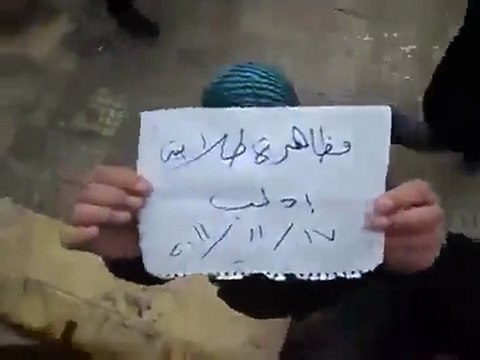 مظاهرة طلابية
إدلب
١٧/١١/٢٠١١